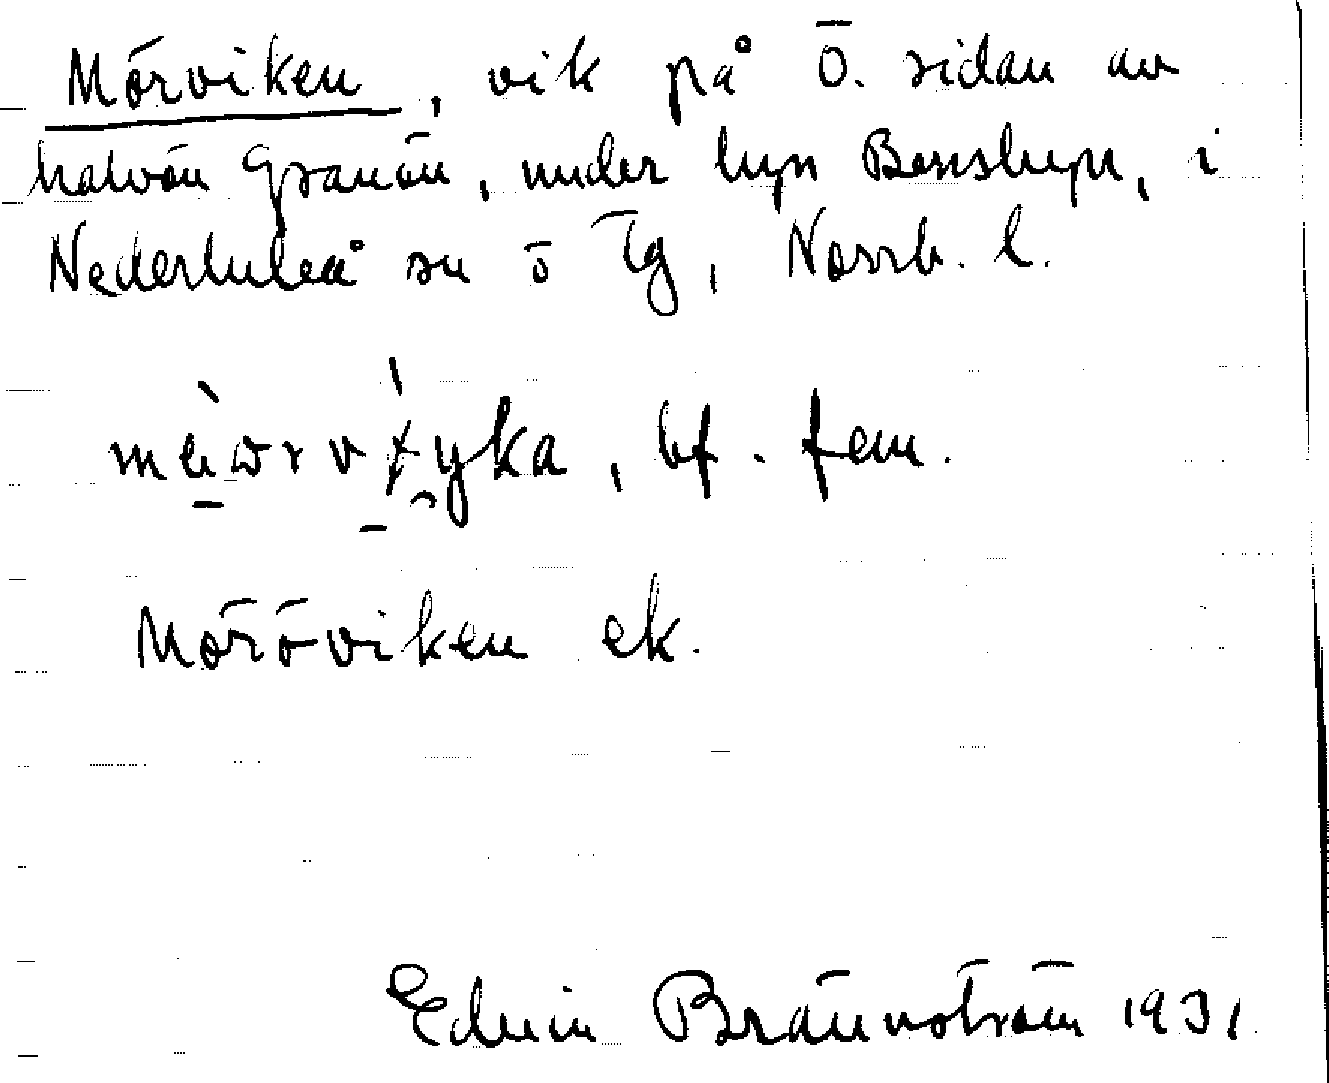 Mörviken, vik på Ö. sidan av
halvön Granön, under byn Bensbyn, i
Nederluleå sn ö Tg, Norrb. l.
bf. fem.
Möröviken ek.
Edvin Brännström 1931